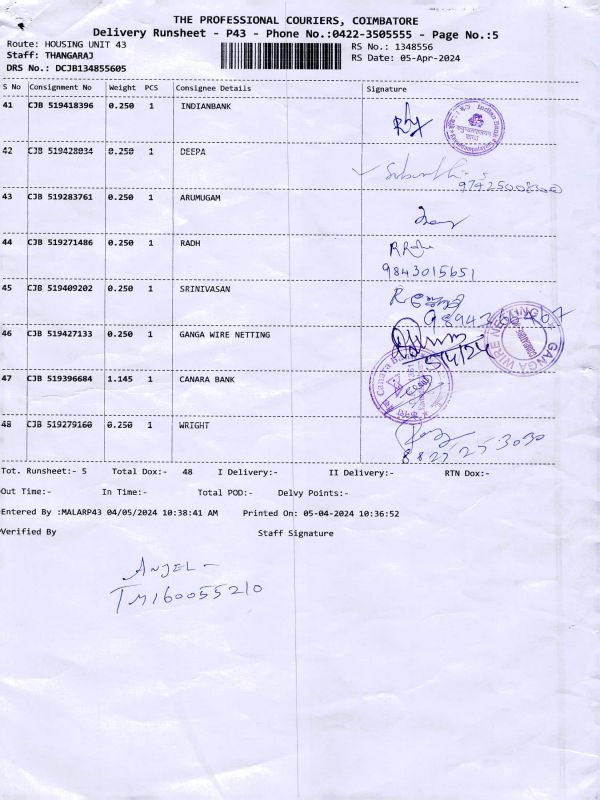 THE PROFESSIONAL COURIERS, COIMBATORE
Delivery Runsheet - P43 - Phone No.:0422-3505555 - Page No.:5
Route: HOUSING UNIT 43
RS No.: 1348556
Staff: THANGARAJ
RS Date: 05-Apr-2024
DRS No.: DCJB134855605
S No Consignment No Weight PCS Consignee Details Signature
41 CJB 519418396 0.250 1 INDIANBANK
42 CJB 519428034 0.250 1 DEEPA
43 CJB 519283761 0.250 1 ARUMUGAM
44 CJB 519271486 0.250 1 RADH
9843015651
45 CJB 519409202 0.250 1 SRINIVASAN
46 CJB 519427133 0.250 1 GANGA WIRE NETTING
5/4/24
GANGA WIRE NETTING
47 CJB 519396684 1.145 1 CANARA BANK
Canara
48 CJB 519279160 0.250 1 WRIGHT
Tot. Runsheet:- 5 Total Dox:- 48 I Delivery:- II Delivery:- RTN Dox:-
Out Time:- In Time:- Total POD:- Delvy Points:-
Entered By :MALARP43 04/05/2024 10:38:41 AM Printed On: 05-04-2024 10:36:52
Verified By Staff Signature
ANJEL -
TM160055210